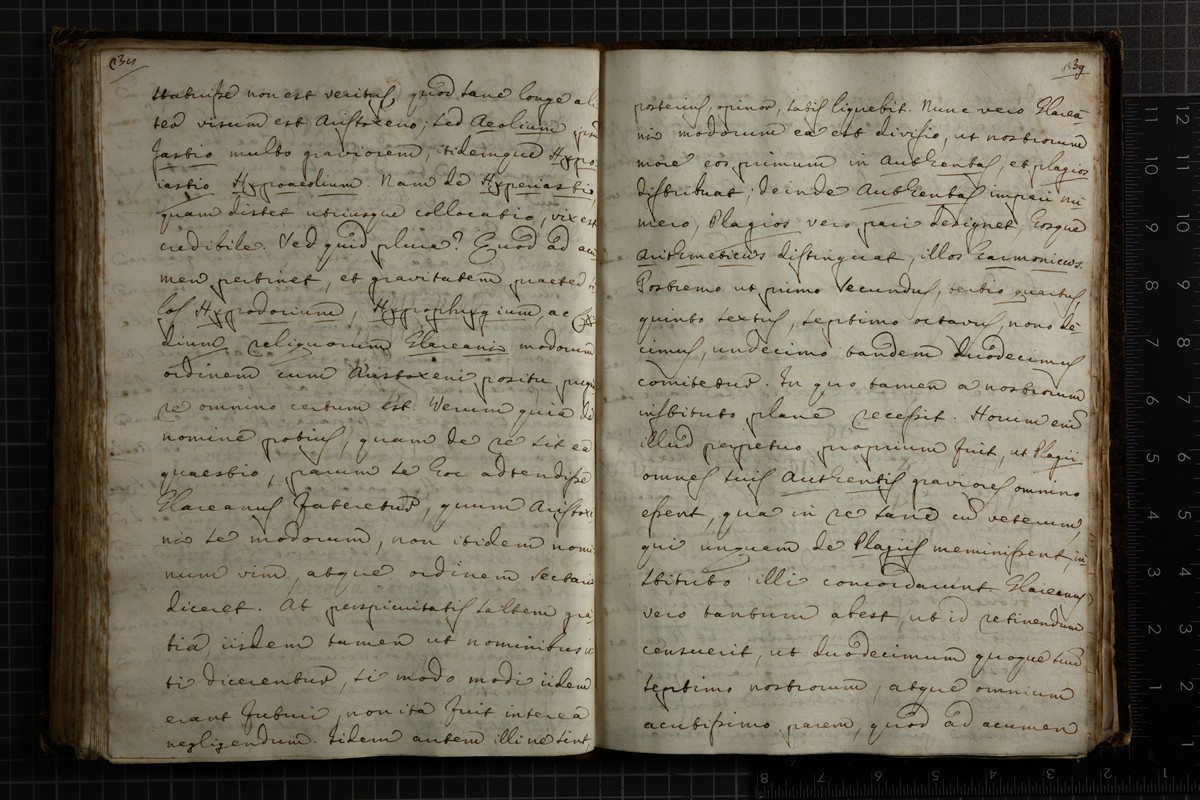 statuisse non est veritus, quod sane longe ali
ter visum est Aristoxeno; sed Aeolium ipso
Jastio multo graviorem, itidemque Hypo
iastio Hypoaeolium. Nam de Hyperiastio,
quam distet utriusque collocatio, vix est
credibile. Sed quid plura? Quod ad acu
men pertinet, et gravitatem praeter
los Hypodorium, Hypophrygium, ac
dium, reliquorum Glareanis modorum
ordinem cum Aristoxeni positu pugna
re omnino certum est. Verum quia de
nomine potius, quam de re sit ea
quaestio, parum se hoc adtendisse
Glareanus fateretur, quum Aristoxe
nis se modorum, non itidem nomi
num vim, atque ordinem sectari
diceret. At perspicuitatis saltem gra
tia iisdem tamen ut nominibus
ti dicerentur, si modo modi iidem
erant futuri, non ita fuit interea
negligendum. Iidem autem illi ne sint,
239
posterius, opinor, satis liquebit. Nunc vero Glarea
nis modorum ea est divisio, ut nostrorum
more eos primum in Authentas, et plagios
distribuat; deinde Authentas impari nu
mero, Plagios vero pari designet Eosque
arithmeticos distinguat, illos harmonicos.
Postremo ut primo secundus, tertio quartus,
quinto sextus, septimo octavus, nono de
cimus, undecimo tandem duodecimus
comitetur. In quo tamen a nostrorum
instituto plane recessit. Horum enim
illud perpetuo proprium fuit, ut Plagii
omnes suis Authentis graviores omnino
essent, qua in re sane cum veterum,
qui unquam de Plagiis meminissent, in
stituto illi concordarunt Glareanus
vero tantum abest, ut id retinendum
censuerit, ut duodecimum quoque suum
septimo nostrorum, atque omnium
acutissimo parem, quod ad acumen